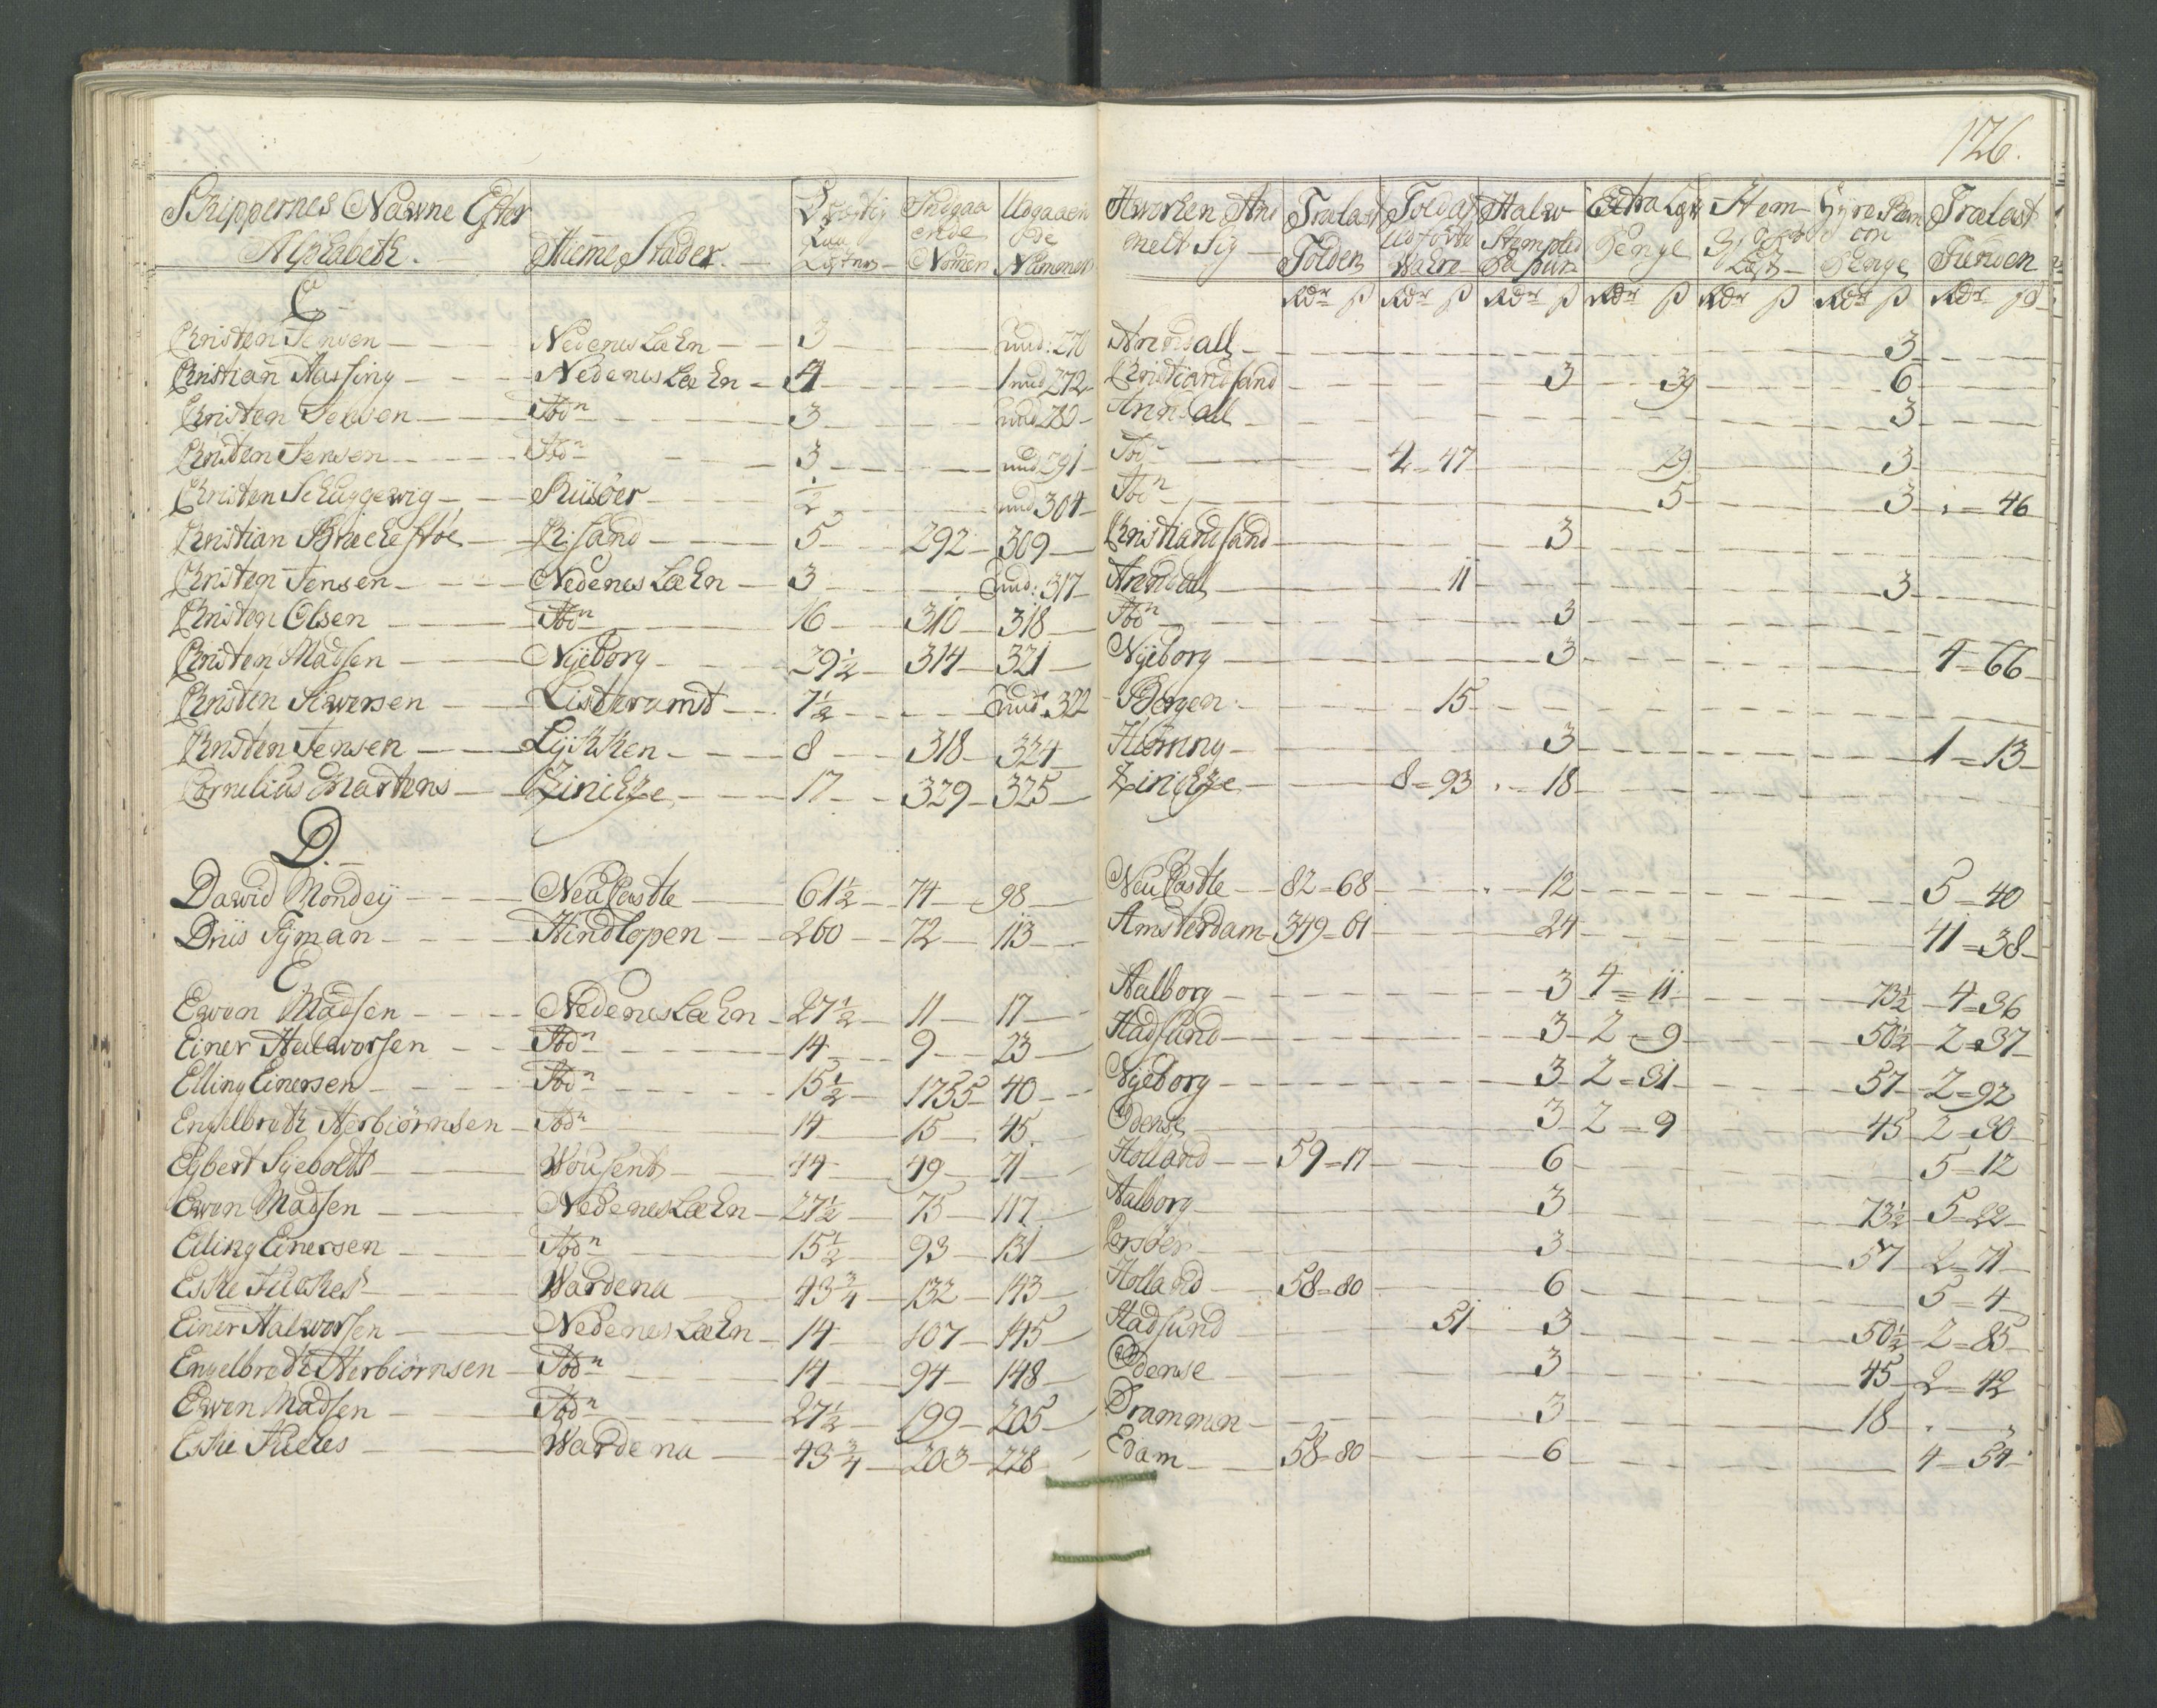 126.
Skippernes Nawne Efter Alphabeth. Hieme Stæder. Drægtighed Indgaaende Nomer Udgaaende Nummer Hworhen Anmelt Sig Trælast Tolden Told af Udførte Wahre Halw Stemplet Papiir Extra Penge Penge Trælast Tienden
Rdr ß Rdr ß Rdr ß Rdr ß Rdr ß Rdr ß Rdr ß
C
Christen Jensen Nedenes LæEn 3 und: 270 Arendall 3
Christian Aassing Nedenes LæEn 4 und 272 Christiandsand 3 39 6
Christen Jensen Ibdn 3 und 280 Arendall 3
Christen Jensen Ibdn 3 und 291 Ibdn 4=47 29 3
Christen Schuggewig Riisöer ½ und 304 Ibdn 5 3 "=46
Christian Brechestöe Ch:sand 5 292 309 Christiandsand 3
Christen Jensen Nedenes LæEn 3 und: 317 Arendall 11 3
Christen Olsen Ibdn 16 310 318 Ibdn 3
Christen Madsen Nÿeborg 29½ 314 321 Nÿeborg 3 4=66
Christen Siwersen Listeramt 7½ und: 322 Bergen 15
Christen Jensen Lÿkken 8 318 324 3 1=13
Cornelius Martens Zirichze 17 329 325 Zirichze 8=93 "=18
D.
Dawid Mondeÿ NeuCastle 61½ 74 98 NeuCastle 82=68 " 12 5=40
Driis Tÿman Hindlopen 260 72 113 Amsterdam 349=61 24 41=38
E
Ewen Madsen Nedenes LæEn 27½ 11 17 Aalborg 3 4=11 73½ 4=36
Einer Halworsen Ibdn 14 9 23 Hadsund 3 2=9 50½ 2=37
Elling Einersen Ibdn 15½ 1755 40 Nÿeborg 3 2=31 57 2=92
Engelbreth Herbiörnsen Ibdn 14 15 45 Odense 3 2=9 45 2=30
Egbert Sÿebolds Wousent 44 49 71 Holland 59=17 6 5=12
Ewen Madsen Nedenes LæEn 27½ 75 117 Aalborg 3 73½ 5=22
Elling Einersen Ibdn 15½ 93 131 Corsöer 3 57 2=71
Eske Fuckes Wardena 43¾ 132 143 Holland 58=80 6 5=4
Einer Halworsen Nedenes LæEn 14 107 145 Hadsund 51 3 50½ 2=85
Engelbreth Herbiörnsen Ibdn 14 94 148 Odense 3 45 2=42
Ewen Madsen Ibdn 27½ 199 205 Drammen 3 18
Eske Fuckes Wardena 43¾ 203 228 Edam 58=80 6 4=54